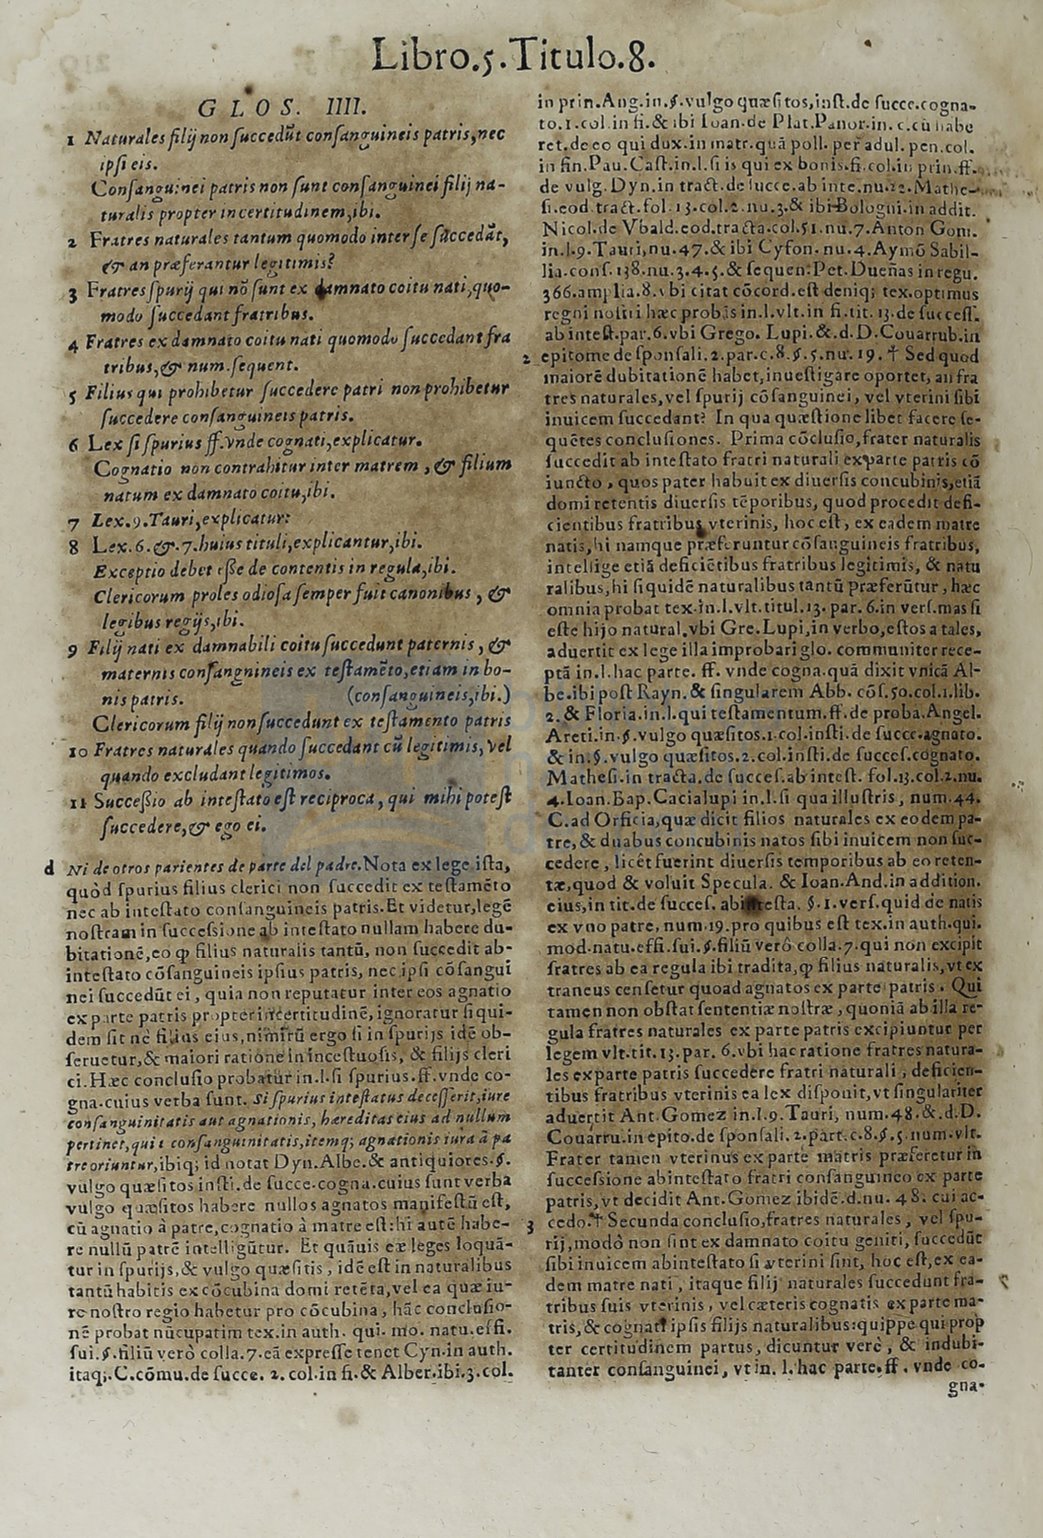 Libro.5.Titulo.8.
GLOS. IIII.
1 Naturales filij non succedūt consanguineis patris,nec
ipsi eis.
Consanguinei patris non sunt consanguinei filij na-
turalis propter incertitudinem,ibi.
2 Fratres naturales tantum quomodo inter se succedāt,
& an præferantur legitimis?
3 Fratres spurij qui nō sunt ex damnato coitu nati,quo-
modo succedant fratribus.
4 Fratres ex damnato coitu nati quomodo succedant fra
tribus,& num.sequent.
5 Filius qui prohibetur succedere patri non prohibetur
succedere consanguineis patris.
6 Lex si spurius ff.vnde cognati,explicatur.
Cognatio non contrahitur inter matrem, & filium
natum ex damnato coitu,ibi.
7 Lex.9.Tauri,explicatur:
8 Lex.6.&.7.huius tituli,explicantur,ibi.
Exceptio debet esse de contentis in regula,ibi.
Clericorum proles odiosa semper fuit canonibus, &
legibus regijs,ibi.
9 Filij nati ex damnabili coitu succedunt paternis, &
maternis consangnineis ex testamēto,etiam in bo-
nis patris. (consanguineis,ibi.)
Clericorum filij non succedunt ex testamento patris
10 Fratres naturales quando succedant cū legitimis, vel
quando excludant legitimos.
11 Successio ab intestato est reciproca, qui mihi potest
succedere,& ego ei.
d Ni de otros parientes de parte del padre.Nota ex lege ista,
quòd spurius filius clerici non succedit ex testamēto
nec ab intestato consanguineis patris.Et videtur,legē
nostram in successione ab intestato nullam habere du-
bitationē,eo ꝙ filius naturalis tantū, non succedit ab-
intestato cōsanguineis ipsius patris, nec ipsi cōsangui
nei succedūt ei, quia non reputatur inter eos agnatio
ex parte patris propter incertitudinē,ignoratur siqui-
dem sit nè filius eius,nimirū ergo si in spurijs idē ob-
seruetur,& maiori ratione in incestuosis, & filijs cleri
ci.Hæc conclusio probatur in.l.si spurius.ff.vnde co-
gna.cuius verba sunt. Si spurius intestatus decesserit,iure
consanguinitatis aut agnationis, hæreditas eius ad nullum
pertinet,quia consanguinitatis,itemq; agnationis iura à pa
tre oriuntur,ibiq; id notat Dyn.Albe.& antiquiores.§.
vulgo quæsitos insti.de succe.cogna.cuius sunt verba
vulgo quæsitos habere nullos agnatos manifestū est,
cū agnatio à patre,cognatio à matre est:hi autē habe-
re nullū patrē intelligūtur. Et quāuis eæ leges loquā-
tur in spurijs,& vulgo quæsitis, idē est in naturalibus
tantū habitis ex cōcubina domi retēta,vel ea quæ iu-
re nostro regio habetur pro cōcubina, hāc conclusio-
nē probat nūcupatim tex.in auth. qui. mo. natu.effi.
sui.§.filiū verò colla.7.eā expresse tenet Cyn.in auth.
itaq;.C.cōmu.de succe. 2. col.in fi.& Alber.ibi.3.col.
in prin.Ang.in.§.vulgo quæsitos,inst.de succe.cogna-
to.1.col.in fi.& ibi Ioan.de Plat.Panor.in.c.cū habe
ret.de eo qui dux.in matr.quā poll. per adul. pen.col.
in fin.Pau.Cast.in.l.si is qui ex bonis.fi.col.in prin.ff.
de vulg.Dyn.in tract.de succe.ab inte.nu.12.Mathe-
si.eod.tract.fol.13.col.2.nu.3.& ibi Bologni.in addit.
Nicol.de Vbald.eod.tracta.col.51.nu.7.Anton Gom.
in.l.9.Tauri,nu.47.& ibi Cyfon.nu.4.Aymō Sabil-
lia.cons.138.nu.3.4.5.& sequen:Pet.Dueñas in regu.
366.amplia.8.vbi citat cōcord.est deniq; tex.optimus
regni nostri hæc probās in.l.vlt.in fi.tit.13.de success.
ab intest.par.6.vbi Grego. Lupi.&.d.D.Couarrub.in
2 epitome de sponsali.2.par.c.8.§.5.nu.19.† Sed quod
maiorē dubitationē habet,inuestigare oportet, an fra
tres naturales,vel spurij cōsanguinei, vel vterini sibi
inuicem succedant? In qua quæstione libet facere se-
quētes conclusiones. Prima cōclusio,frater naturalis
succedit ab intestato fratri naturali ex parte patris cō
iuncto, quos pater habuit ex diuersis concubinis,etiā
domi retentis diuersis tēporibus, quod procedit defi-
cientibus fratribus vterinis, hoc est, ex eadem matre
natis,hi namque præferuntur cōsanguineis fratribus,
intellige etiā deficiētibus fratribus legitimis, & natu
ralibus,hi siquidē naturalibus tantū præferūtur, hæc
omnia probat tex.in.l.vlt.titul.13. par. 6.in vers.mas si
este hijo natural.vbi Gre.Lupi,in verbo,estos a tales,
aduertit ex lege illa improbari glo. communiter rece-
ptā in.l.hac parte. ff. vnde cogna.quā dixit vnicā Al-
be.ibi post Rayn.& singularem Abb. cōs.50.col.1.lib.
2.& Floria.in.l.qui testamentum.ff.de proba.Angel.
Areti.in.§.vulgo quæsitos.1.col.insti.de succe.agnato.
& in.§.vulgo quæsitos.2.col.insti.de succes.cognato.
Mathesi.in tracta.de succes.ab intest. fol.13.col.2.nu.
4.Ioan.Bap.Cacialupi in.l.si qua illustris, num.44.
C.ad Orficia,quæ dicit filios naturales ex eodem pa-
tre,& duabus concubinis natos sibi inuicem non suc-
cedere, licèt fuerint diuersis temporibus ab eo reten-
tæ,quod & voluit Specula. & Ioan.And.in addition.
eius,in tit.de succes. ab intesta. §.1.vers.quid de natis
ex vno patre, num.19.pro quibus est tex.in auth.qui.
mod.natu.effi.sui.§.filiū verò colla.7.qui non excipit
fratres ab ea regula ibi tradita,ꝙ filius naturalis,vt ex
traneus censetur quoad agnatos ex parte patris. Qui
tamen non obstat sententiæ nostræ, quoniā ab illa re-
gula fratres naturales ex parte patris excipiuntur per
legem vlt.tit.13.par.6.vbi hac ratione fratres natura-
les ex parte patris succedere fratri naturali, deficien-
tibus fratribus vterinis ea lex disponit,vt singulariter
aduertit Ant.Gomez in.l.9.Tauri, num.48.&.d.D.
Couarru.in epito.de sponsali.2.part.c.8.§.5.num.vlt.
Frater tamen vterinus ex parte matris præferetur in
successione abintestato fratri consanguineo ex parte
patris,vt decidit Ant.Gomez ibidē.d.nu. 48. cui ac-
3 cedo.† Secunda conclusio,fratres naturales, vel spu-
rij,modò non sint ex damnato coitu geniti, succedūt
sibi inuicem abintestato si vterini sint, hoc est,ex ea-
dem matre nati, itaque filij naturales succedunt fra-
tribus suis vterinis, vel cæteris cognatis ex parte ma-
tris,& cognati ipsis filijs naturalibus:quippe qui prop
ter certitudinem partus, dicuntur verè, & indubi-
tanter consanguinei, vt in. l. hac parte.ff. vnde co-
gna-